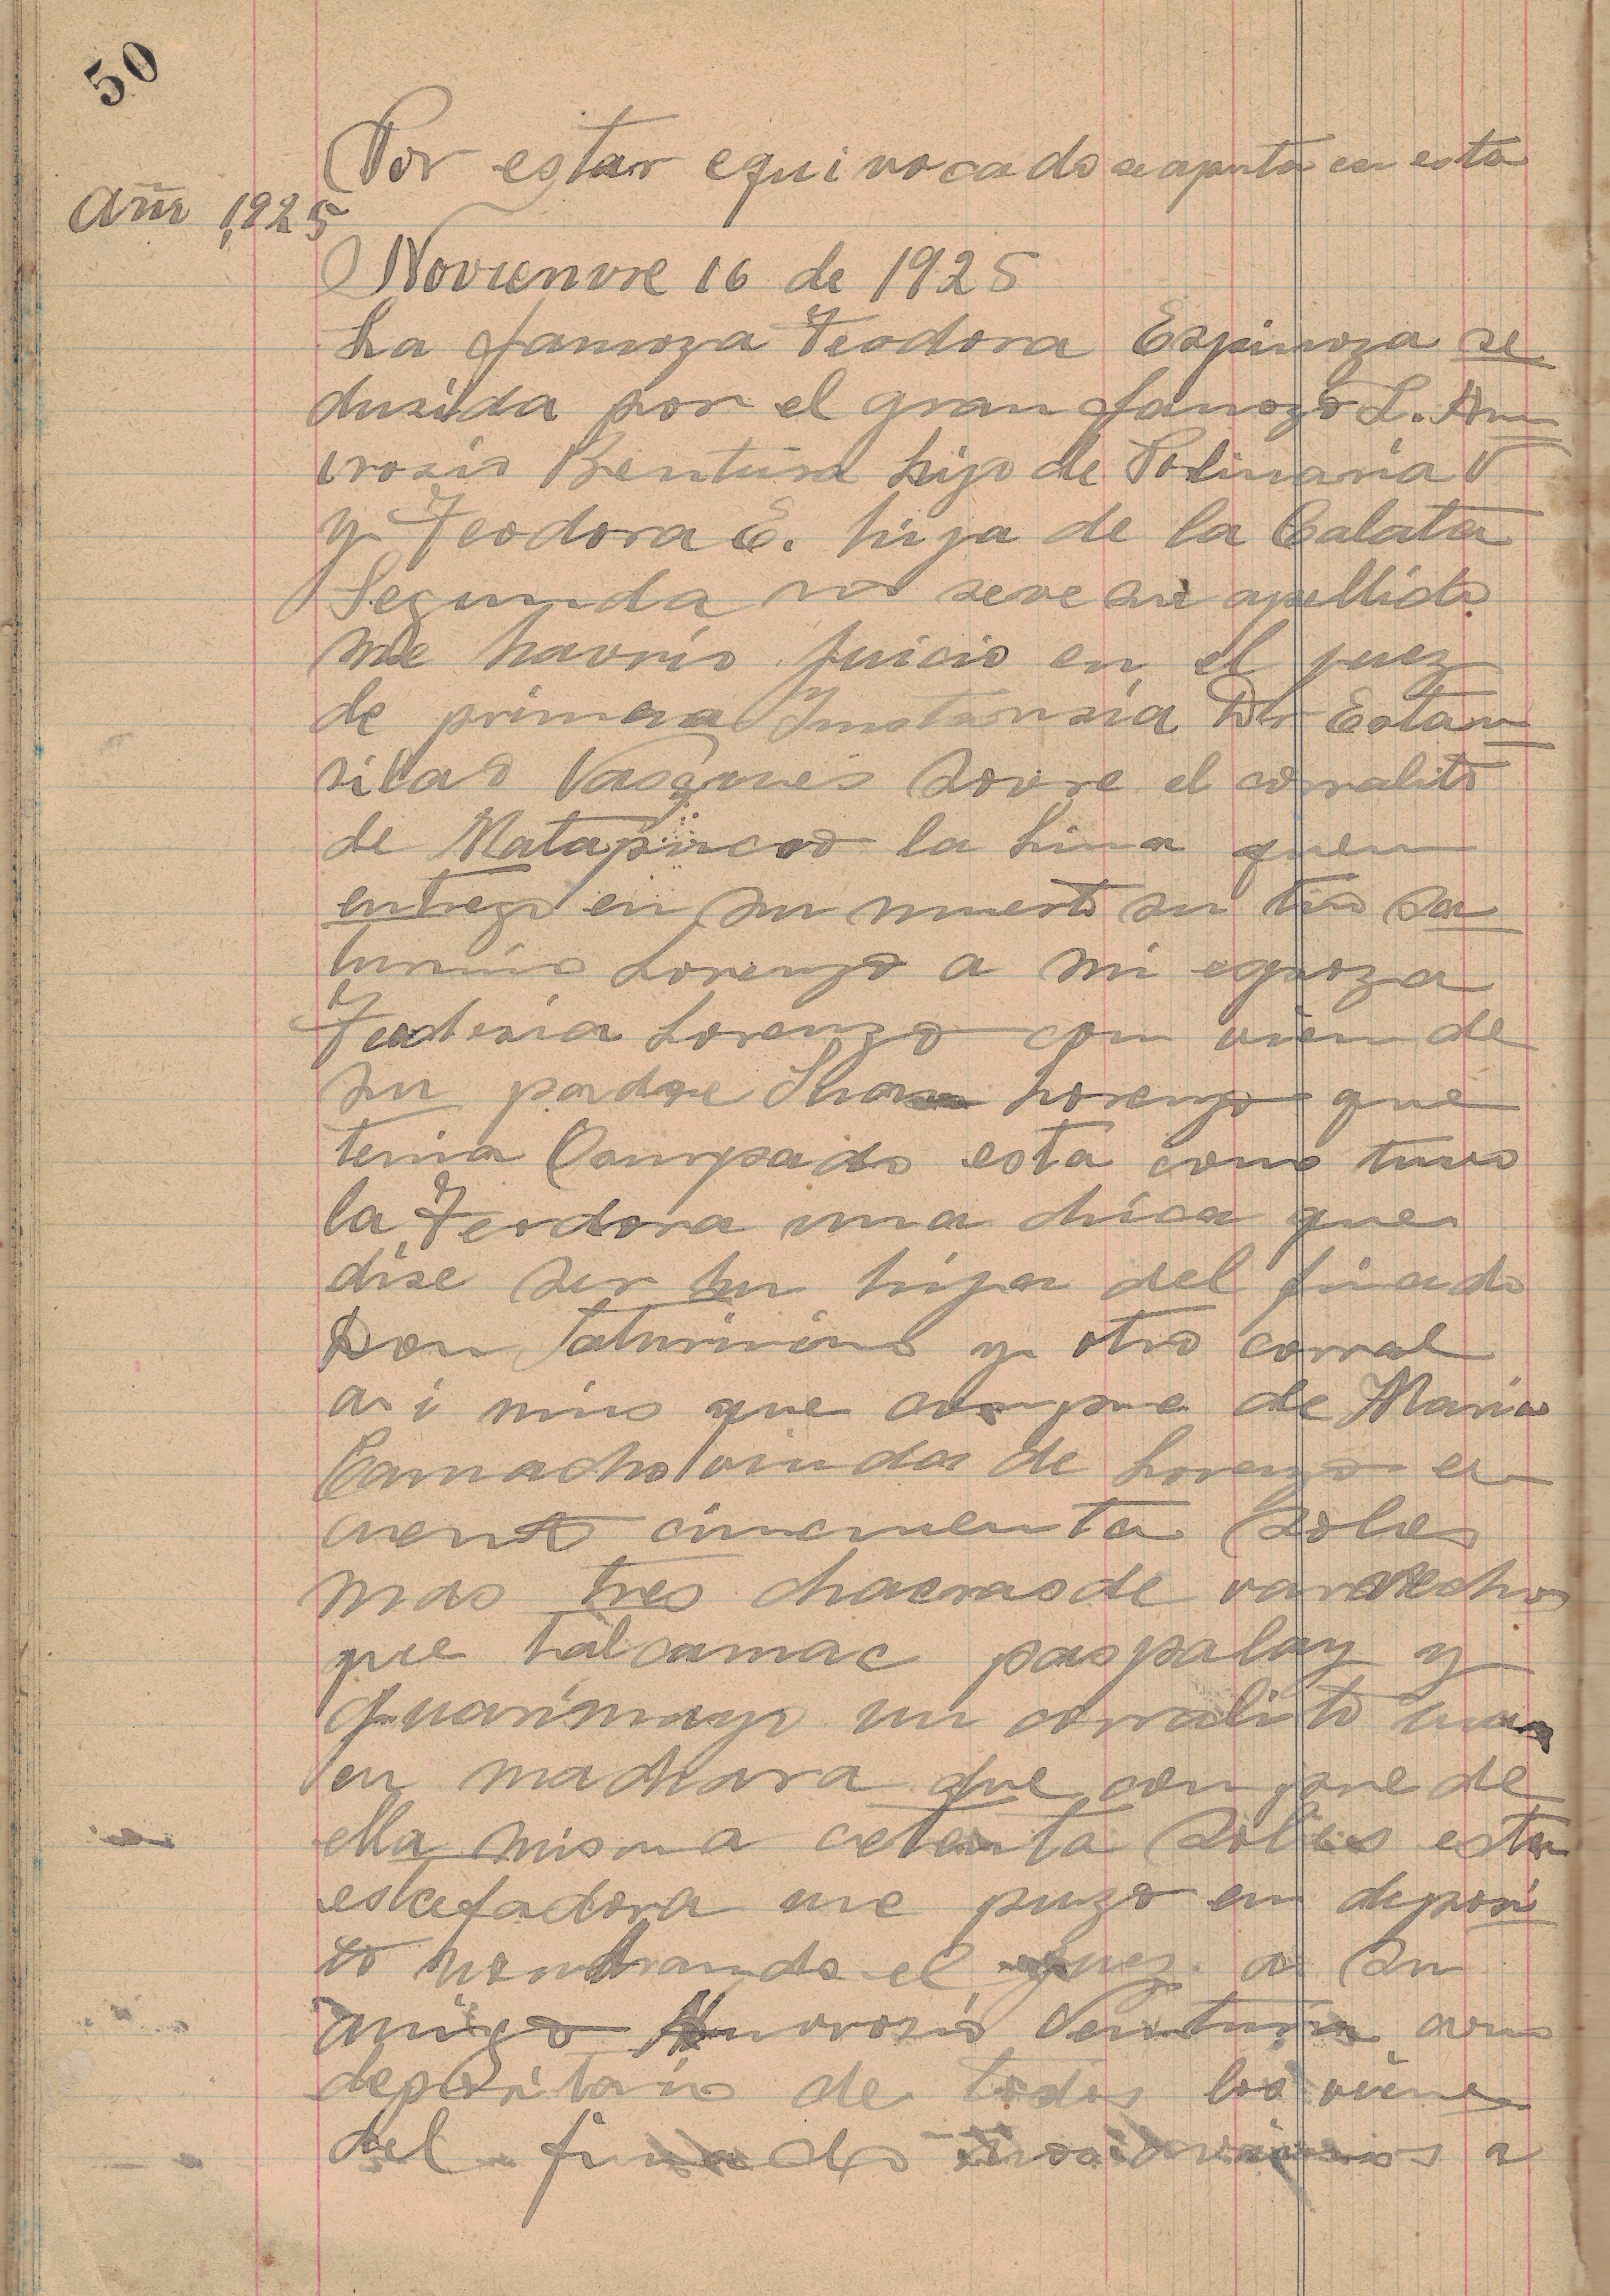 50
Por estar equivocado se apunta en esta
Año 1925
Novienvre 16 de 1925
La famoza Teodora Espinoza se
dusida por el gran famozo L. Am
vrosio Bentura hijo de Polinaria V
y Teodora E. hija de la Calata
Segunda no seve su apellido
me havrio juicio en el juez
de primera Instansia Dr Estan
silao Vasques sovre el corralito
de Matapircoo la Lima quen
entrego en su muerte su tio Sa
turnino Lorenzo a mi espoza
Lorenzo con vien de
su padre Lorenzo que
tenia Comprado esta como tuvo
la Teodora una chica que
dise ser su hija del finado
Don Saturnino y otro corral
asi mio que compre de Maria
Camacho viuda de Lorenzo en
ciento cincuenta Soles
mas tres chacras de
que Lalcamac paspalay y
Quarimayo un corralito
en machara que compre de
ella misma cetenta Soles esta
estafadora me puzo en deposi
to nombrando el juez a su
amigo Amvrosio Ventura como
depositario de todos los vienes
del finado a